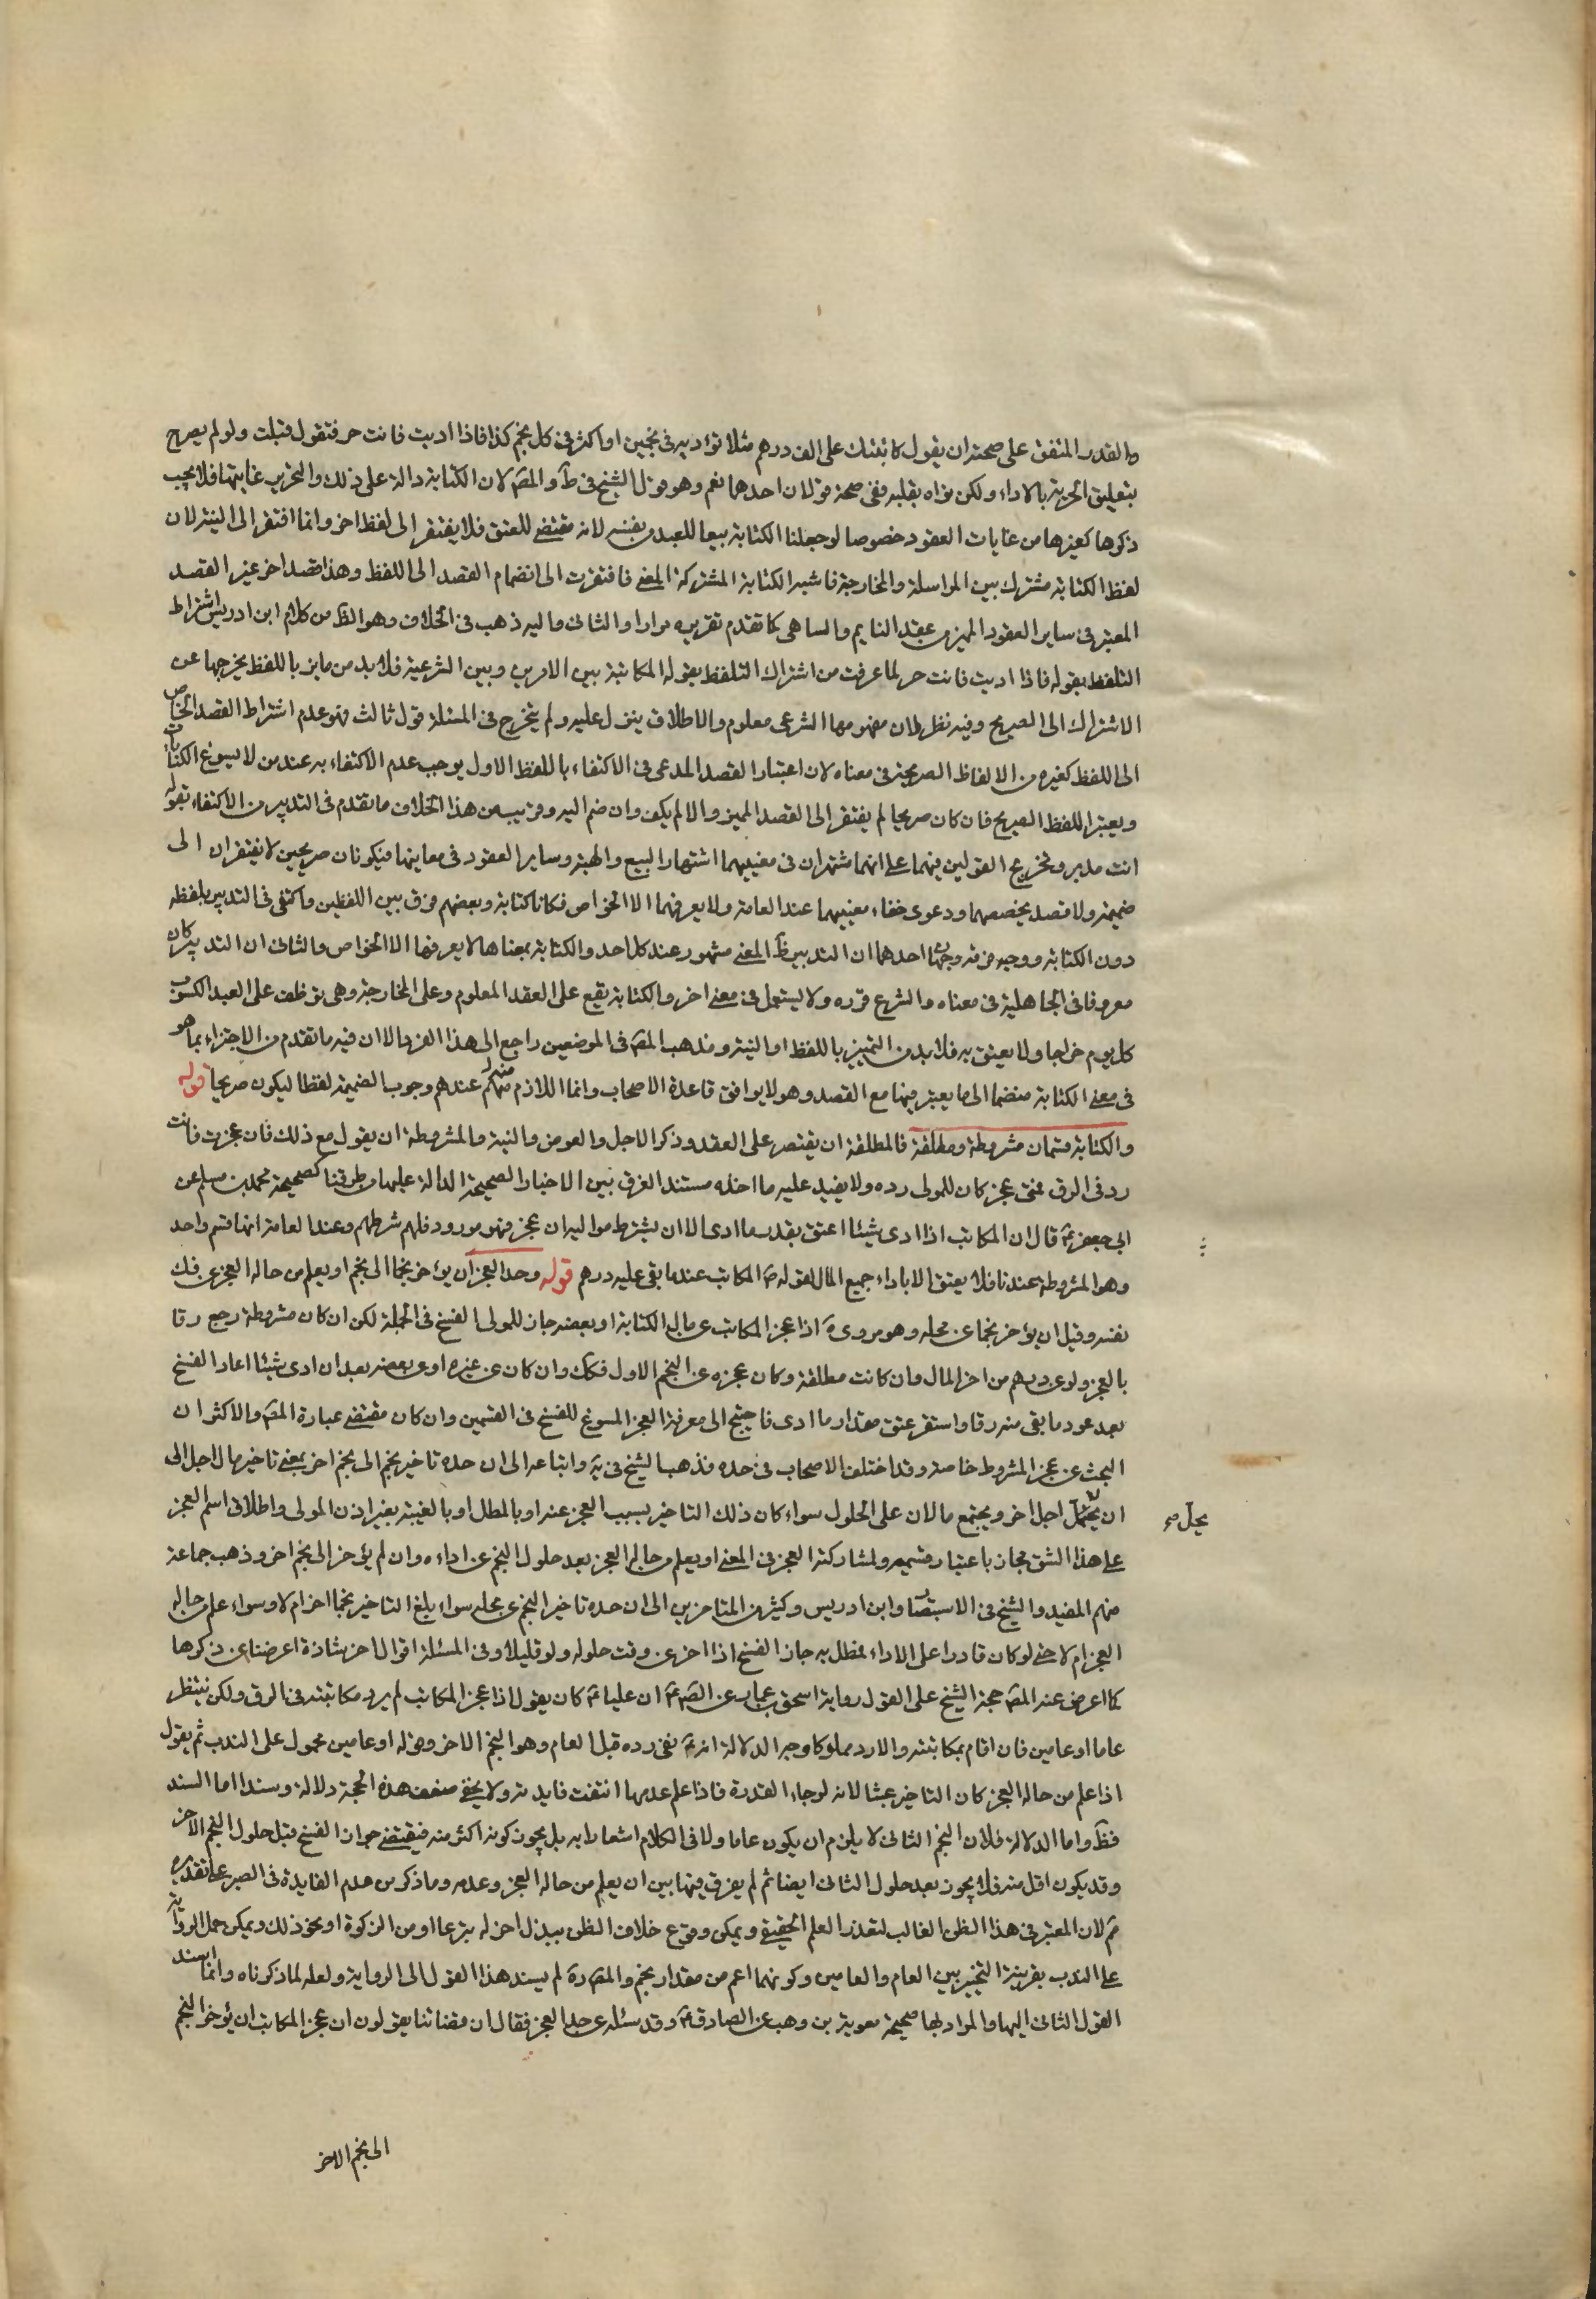 والقدر المتفق على صحته ان يقول كاتبتك على الف درهم مثلا تؤديه في نجمين او اكثر في كل نجم كذا فاذا اديت فانت حر فتقول قبلت ولو لم يصرح
بتعليق الحرية بالاداء ولكن نواه بقلبه ففي صحته قولان احدهما نعم وهو قول الشيخ في ط والمصه لان الكتابة دالة على ذلك والتحرير غايتها فلا يجب
ذكرها كغيرها من غايات العقود خصوصا لو جعلنا الكتابة بيعا للعبد من نفسه لانه مقتضى للعتق فلا يفتقر الى لفظ اخر وانما افتقر الى النية لان
لفظ الكتابة مشترك بين المراسلة والمخارجة فاشبه الكتابة المشتركة المعنى فافتقرت الى انضمام القصد الى اللفظ وهذا قصد اخر غير القصد
المعتبر في ساير العقود المميز من عقد النايم والساهي كما تقدم تقريره مرارا والثاني واليه ذهب في الخلاف وهو الظ من كلام ابن ادريس اشتراط
التلفظ بقوله فاذا اديت فانت حر لما عرفت من اشتراك التلفظ بقوله المكاتبة بين الامرين وبين الشرعية فلا بد من مايز باللفظ يخرجها عن
الاشتراك الى الصريح وفيه نظر لان مفهومها الشرعي معلوم والاطلاق ينزل عليه ولم يتخرج في المسئلة قول ثالث وهو عدم اشتراط القصد الخاص
الى اللفظ كغيره من الالفاظ الصريحة في معناه لان اعتبار القصد المدعى في الاكتفاء باللفظ الاول يوجب عدم الاكتفاء به عند من لا يسوغ الكنايات
ويعتبر اللفظ الصريح فان كان صريحا لم يفتقر الى القصد المميز والا لم يكف وان ضم اليه وقريب من هذا الخلاف ما تقدم في التدبير من الاكتفاء بقوله
انت مدبر وتخريج القولين فيهما على انهما مشتهران في معنييهما اشتهار البيع والهبة وساير العقود في معاينها فيكونان صريحين لا يفتقران الى
ضميمة ولا قصد يخصصهما ودعوى خفاء معنييهما عند العامة ولا يعرفهما الا الخواص فكانا كناية وبعضهم فرق بين اللفظين واكتفى في التدبير بلفظه
دون الكتابة ووجه فرقه وجهان احدهما ان التدبير ظ المعنى مشهور عند كل احد والكتابة بمعناها لا يعرفها الا الخواص والثاني ان التدبير كان
معروفا في الجاهلية في معناه والشرع قرره ولا يستعمل في معنى اخر والكتابة تقع على العقد المعلوم وعلى المخارجة وهي توظف على العبد الكسوب
كل يوم خراجا ولا يعتق به فلا بد من التمييز باللفظ او النية ومذهب المصه في الموضعين راجع الى هذا الفرق الا ان فيه ما تقدم من الاجتزاء بما هو
في معنى الكتابة منضما الى ما يعتبر فيها مع القصد وهو لا يوافق قاعدة الاصحاب وانما اللازم منه عندهم وجوب الضميمة لفظا ليكون صريحا قوله
والكتابة قسمان مشروطة ومطلقة فالمطلقة ان يقتصر على العقد وذكر الاجل والعوض والنية والمشروطة ان يقول مع ذلك فان عجزت فانت
رد في الرق فمتى عجز كان للمولى رده ولا يفيد عليه ما اخذه مستند الفرق بين الاخبار الصحيحة الدالة عليهما من طرقنا كصحيحة محمد بن مسلم عن
ابي جعفر ع قال ان المكاتب اذا ادى شيئا اعتق بقدر ما ادى الا ان يشترط مواليه ان عجز فهو مردود فلهم شرطهم وعند العامة انها قسم واحد
وهو المشروطة عندنا فلا يعتق الا باداء جميع المال لقوله ص المكاتب عبد ما بقى عليه درهم قوله وحد العجز ان يؤخر نجما الى نجم او يعلم من حاله العجز عن فك
نفسه وقيل ان يؤخر نجما عن محله وهو مروى ة اذا عجز المكاتب عن مال الكتابة او بعضه جاز للمولى الفسخ في الجملة لكن ان كان مشروطة رجع رقا
بالعجز ولو عن درهم من اخر المال وان كانت مطلقة وكان عجزه عن النجم الاول فكك وان كان عن غيره او عن بعضه بعد ان ادى شيئا اعاد الفسخ
بعد عود ما بقى منه رقا واستقر عتق مقدار ما ادى فاحتيج الى معرفة العجز المسوغ للفسخ في القسمين وان كان مقتضى عبارة المصه والاكثر ان
البحث عن عجز المشروط خاصة وقد اختلف الاصحاب في حده فذهب الشيخ في ية واتباعه الى ان حده تاخير نجم الى نجم اخر بمعنى تاخير مال اجل الى
ان يحل اجل اخر ويجتمع مالان على الحلول سواء كان ذلك التاخير بسبب العجز عنه او بالمطل او بالغيبة بغير اذن المولى واطلاق اسم العجز
يحل صح
على هذا الشق مجاز باعتبار قسيمه ولمشاركته العجز في المعنى او يعلم من حاله العجز بعد حلول النجم عن اداءه وان لم يؤخر الى نجم اخر وذهب جماعة
منهم المفيد والشيخ في الاستبصار وابن ادريس وكثير من المتاخرين الى ان حده تاخير النجم عن محله سواء بلغ التاخير نجما اخر ام لا وسواء علم من حاله
العجز ام لا حتى لو كان قادرا على الاداء فمطل به جاز الفسخ اذا اخر عن وقت حلوله ولو قليلا وفي المسئلة اقوال اخر شاذة اعرضنا عن ذكرها
كما اعرض عنه المصه حجة الشيخ على القول رواية اسحق بن عمار عن الصه ع ان عليا ع كان يقول اذا عجز المكاتب لم يرد مكاتبته في الرق ولكن ينتظر
عاما او عامين فان اقام بمكاتبته والا رد مملوكا وجه الدلالة انه ع نفى رده قبل العام وهو النجم الاخر وقوله او عامين محمول على الندب ثم يقول
اذا علم من حاله العجز كان التاخير عبثا لانه لرجاء القدرة فاذا علم عدمها انتفت فايدته ولا يخفى ضعف هذه الحجة دلالة وسندا اما السند
فظ واما الدلالة فلان النجم الثاني لا يلزم ان يكون عاما ولا في الكلام اشعار به بل يجوز كونه اكثر منه فيقتضى جواز الفسخ قبل حلول النجم الاخر
وقد يكون اقل منه فلا يجوز بعد حلول الثاني ايضا ثم لم يفرق فيها بين ان يعلم من حاله العجز وعدمه وما ذكر من عدم الفايدة في الصبر على تقديره
ثم لان المعتبر في هذا الظن الغالب لتعذر العلم الحقيقي ويمكن وقوع خلاف الظن ببذل احد له تبرعا او من الزكوة او نحو ذلك ويمكن حمل الرواية
على الندب بقرينة التخيير بين العام والعامين وكونهما اعم من مقدار نجم والمصه ره لم يسند هذا القول الى الرواية ولعله لما ذكرناه وانما اسند
القول الثاني اليها والمراد بها صحيحة معوية بن وهب عن الصادق ع وقد سئله عن حد العجز فقال ان قضاتنا يقولون ان عجز المكاتب ان يؤخر النجم
الى نجم الاخر